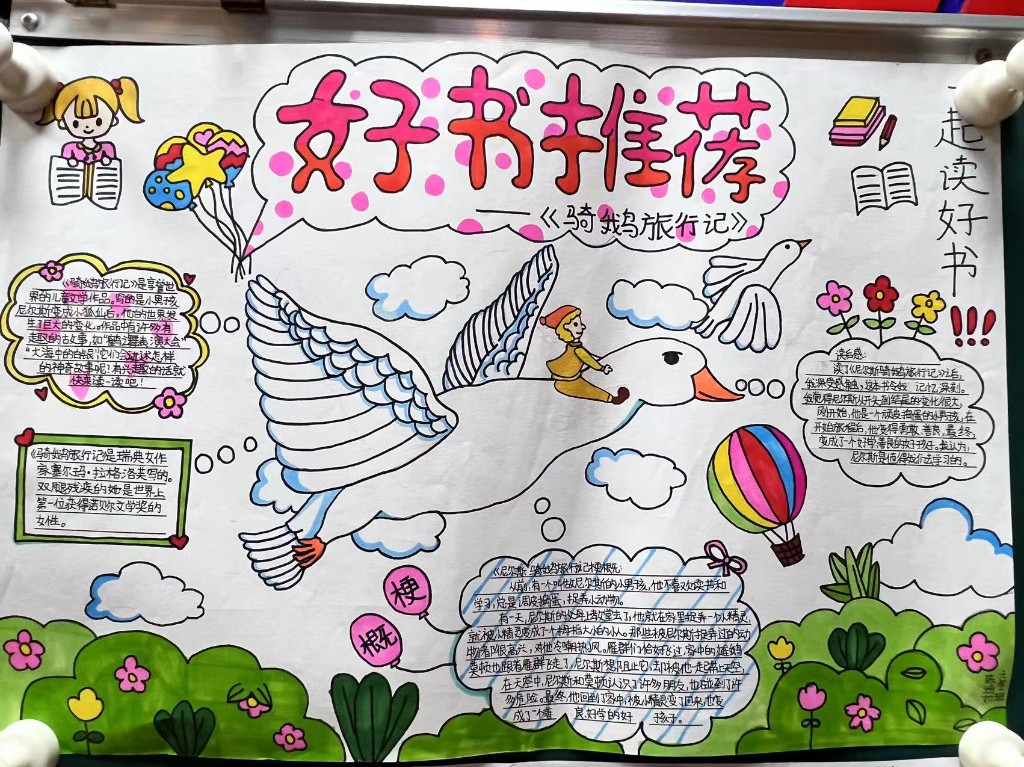 好书推荐
——《骑鹅旅行记》
一起读好书
!!!
《骑鹅旅行记》是享誉世
界的儿童文学作品。写的是小男孩
尼尔斯变成小狐仙后,他的世界发
生了巨大的变化。作品中有许多有
趣的故事,如“鹤之舞表演大会”
“大海中的白银”它们会讲述怎样
的神奇故事呢!有兴趣的话就
快来读一读吧!
《骑鹅旅行记》是瑞典女作
家塞尔玛·拉格洛芙写的。
双腿残疾的她是世界上
第一位获得诺贝尔文学奖的
女性。
读后感:
读了《尼尔斯骑鹅旅行记》之后,
我深受感触,这本书令我 记忆深刻。
我觉得尼尔斯从开头到结尾的变化很大,
刚开始,他是个顽皮捣蛋的小男孩,在
开始旅程后,他变得勇敢、善良,最终,
变成了个好学善良的好孩子。我认为,
尼尔斯是值得我们去学习的。
梗
概
《尼尔斯骑鹅旅行记》梗概:
从前,有一个叫做尼尔斯的小男孩,他不喜欢读书和
学习,总是调皮捣蛋,捉弄小动物。
有一天,尼尔斯的父母上教堂去了,他就在家里捉弄一个小精灵,
就被小精灵变成了个拇指大小的小人。那些被尼尔斯捉弄过的动
物看到很高兴,对他冷嘲热风。雁群们恰好飞过,家中的雄鹅
莫顿也跟着雁群飞走了,尼尔斯想阻止它,却被他一起带上天空,
在天空中,尼尔斯和莫顿认识了许多朋友,也碰到了许
多危险。最终,他回到了家中,被小精灵变了回来,也变
成了一个善 良、好学的好 孩子。